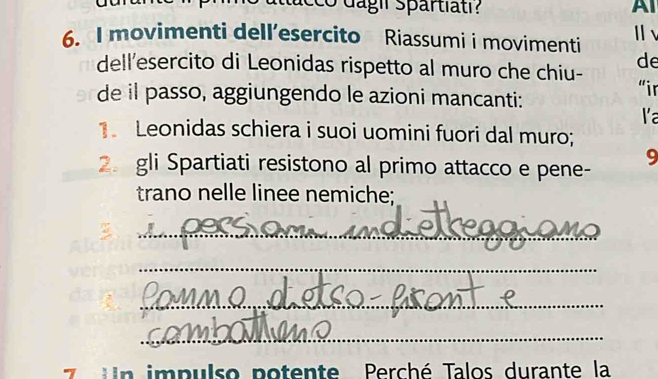 dagli Spartiati?
6. I movimenti dell'esercito Riassumi i movimenti
dell'esercito di Leonidas rispetto al muro che chiu-
de il passo, aggiungendo le azioni mancanti:
1. Leonidas schiera i suoi uomini fuori dal muro;
2. gli Spartiati resistono al primo attacco e pene-
trano nelle linee nemiche;
3. i persiani indietreggiano
fanno dietro-front e
combattono
7 Un impulso potente Perché Talos durante la
Il
de
"in
l'a
9